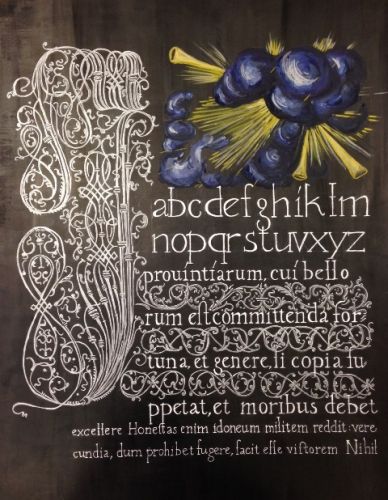 abcdefghiklm
nopqrstuvxyz
prouintíarum, cuí bello
rum eſt committenda for
tuna, et genere, ſi copia ſu
ppetat, et moribus debet
excellere Honeſtas enim idoneum militem reddit: vere
cundia, dum prohibet fugere, facit eſſe victorem Nihil